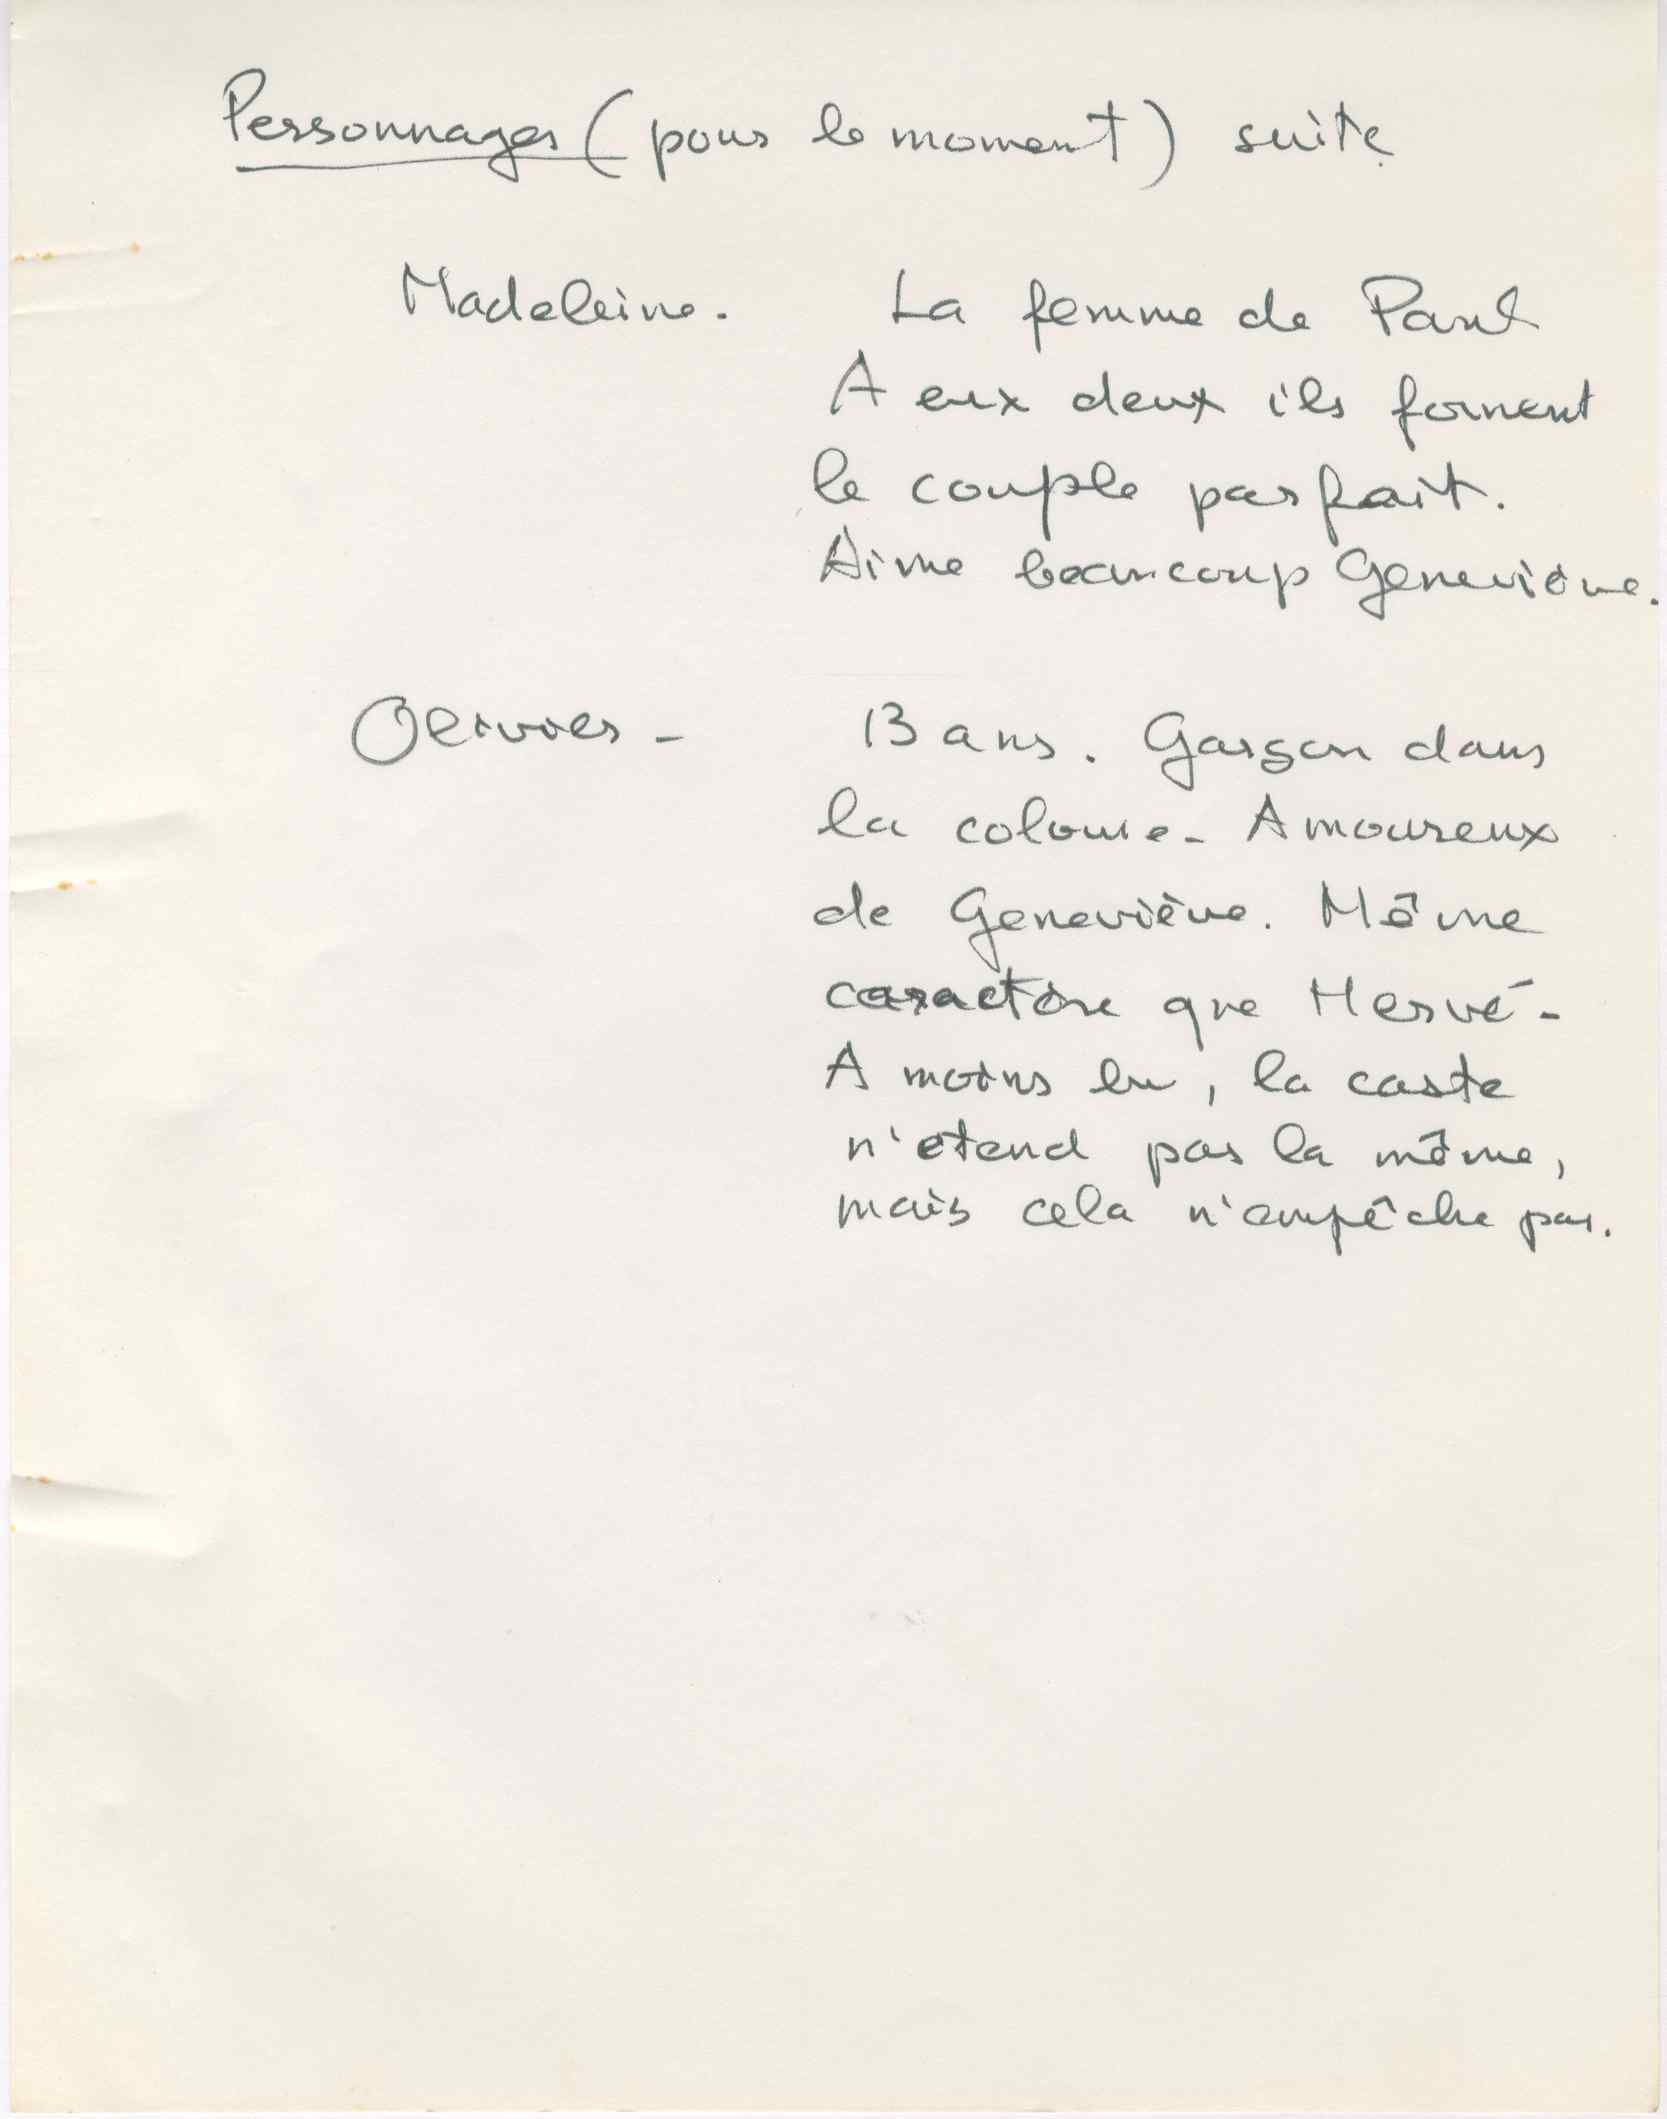 Personnages (pour le moment) suite
Madeleine. La femme de Paul
A eux deux ils forment
le couple parfait.
Aime beaucoup Geneviève.
Olivier - 13 ans. Garçon dans
la colonie - Amoureux
de Geneviève. Même
caractère que Hervé -
A moins lu, la caste
n'étend pas la même,
mais cela n'empêche pas.